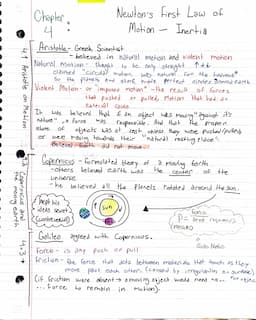 Chapter 4
Newton's First Law of
Motion - Inertia
4.1 Aristotle on Motion
Aristotle - Greek Scientist
- believed in natural motion and violent motion
Natural Motion - thought to be only straight
claimed "circular" motion was natural for the heavens
so the planets and stars made perfect circles around earth
Violent Motion - or "imposed motion" - the result of forces
that pushed or pulled. Motion that had an
external cause
It was believed that if an object was moving "against its
nature", a force was responsible. And that the proper
state of objects was at rest unless they were pushed/pulled
or were moving towards their "natural resting place".
Believed Earth did not move
Copernicus and the moving earth
Copernicus - formulated theory of a moving earth
- others believed earth was the center of the
universe
- he believed all the planets rotated around the sun.
kept his
ideas secret
(controversial)
sun
force
4.3
Galileo agreed with Copernicus.
Force - is any push or pull
Friction - the force that acts between materials that touch as they
move past each other. (caused by irregularities in surface)
(if friction were absent → a moving object would need no
force to remain in motion).